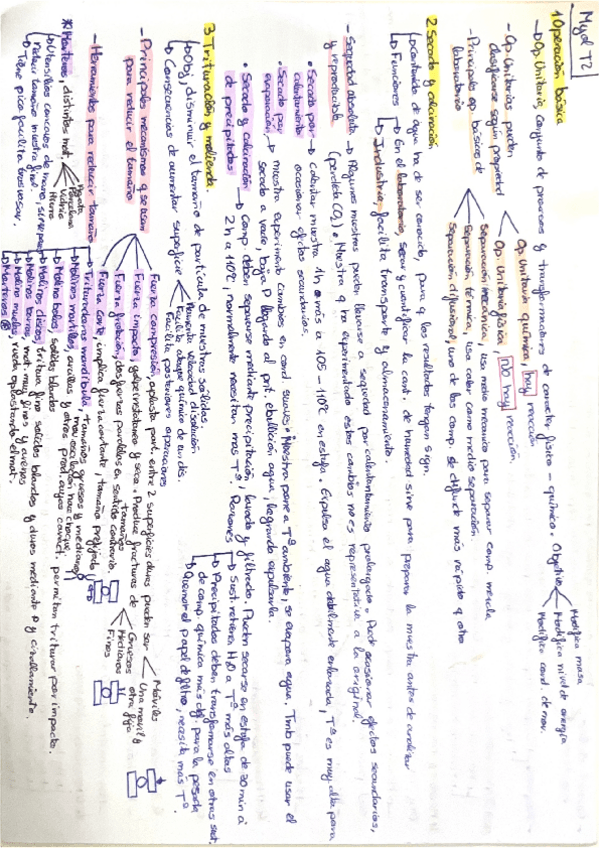 Myol T2
1 Operación básica
→ Op. Unitaria, conjunto de procesos y transformadores de carácter físico-químico. Objetivo
Modifica masa
Modifica nivel de energía
Modifica cond. de mov.
- Op. Unitarias pueden clasificarse según propiedad
Op. Unitaria química, hay reacción
Op. Unitaria física, No hay reacción.
- Principales op. básicas de laboratorio
Separación mecánica, usa medio mecánico para separar comp. mezcla
Separación térmica, usa calor como medio separación
Separación difusional, uno de los comp. se difunde más rápido q otro
2 Secado y calcinación
→ Contenido de agua ha de ser conocido, para q los resultados tengan sign.
→ Funciones
→ En el laboratorio, secar y cuantificar la cant. de humedad sirve para preparar la muestra antes de analizar
→ Industria, facilita transporte y almacenamiento.
- Sequedad absoluta y reproducible
→ Algunas muestras pueden llevarse a sequedad por calentamiento prolongado. Puede ocasionar efectos secundarios,
(perdida CO₂). Muestra q ha experimentado estos cambios no es representativa a la original.
• Secado por calentamiento
→ calentar muestra 1h o más a 105-110ºC en estufa. Expulsa el agua débilmente enlazada. Tª es muy alta para
ocasionar efectos secundarios.
• Secado por evaporación
→ muestra experimenta cambios en cond. suaves. Muestra pone a Tª ambiente, se evapora agua. Tmb puede usar el
secado a vacío, baja P llegando al pnt. ebullición agua, logrando expulsarla.
• Secado y calcinación de precipitados
→ Comp. deben separarse mediante precipitación, lavado y filtrado. Pueden secarse en estufa de 30 min a
2h a 110ºC, normalmente necesitan mas Tª, Razones
→ Sust. retiene H₂O a Tª más altas
→ Precipitados deben transformarse en otras sust.
de comp. química más def. para la pesada
→ Quemar el papel de filtro, necesita mas Tª.
3 Trituración y molienda.
→ Obj. disminuir el tamaño de partícula de muestras sólidas.
→ Consecuencias de aumentar superficie
Aumenta velocidad disolución
Facilita ataque químico de un dis.
Facilita posteriores operaciones
- Principales mecanismos q se usan para reducir el tamaño
Fuerza compresión, aplasta part. entre 2 superficies duras pueden ser
Móviles
Una movil y otra fija
Fuerza impacto, golpe instatáneo y seco. Produce fracturas de tamaños
Gruesos
Medianos
Finos
Fuerza fricción, dos fuerzas paralelas en sentido contrario.
Fuerza corte, implica fuerza cortante, tamaño prefijado
- Herramientas para reducir tamaño
→ Trituradoras mandíbula, tamaños gruesos y medianos
→ Molinos martillos, arcillas y otros prod. cuyas caract. permitan triturar por impacto.
→ Molino bolas, solidos blandos
→ Molinos discos, tritura fino solidos blandos y duros mediante P y cizallamiento.
→ Molinos barras, mat. muy finos y arenas
→ Molino ruedas, rueda aplastante el mat.
→ Morteros
* Morteros, distintos mat.
Agata
Porcelana
Vidrio
Hierro
→ Utensilios concavos de mano, sirven para
reducir tamaño muestra final.
→ Tiene pico facilita trasvasar.